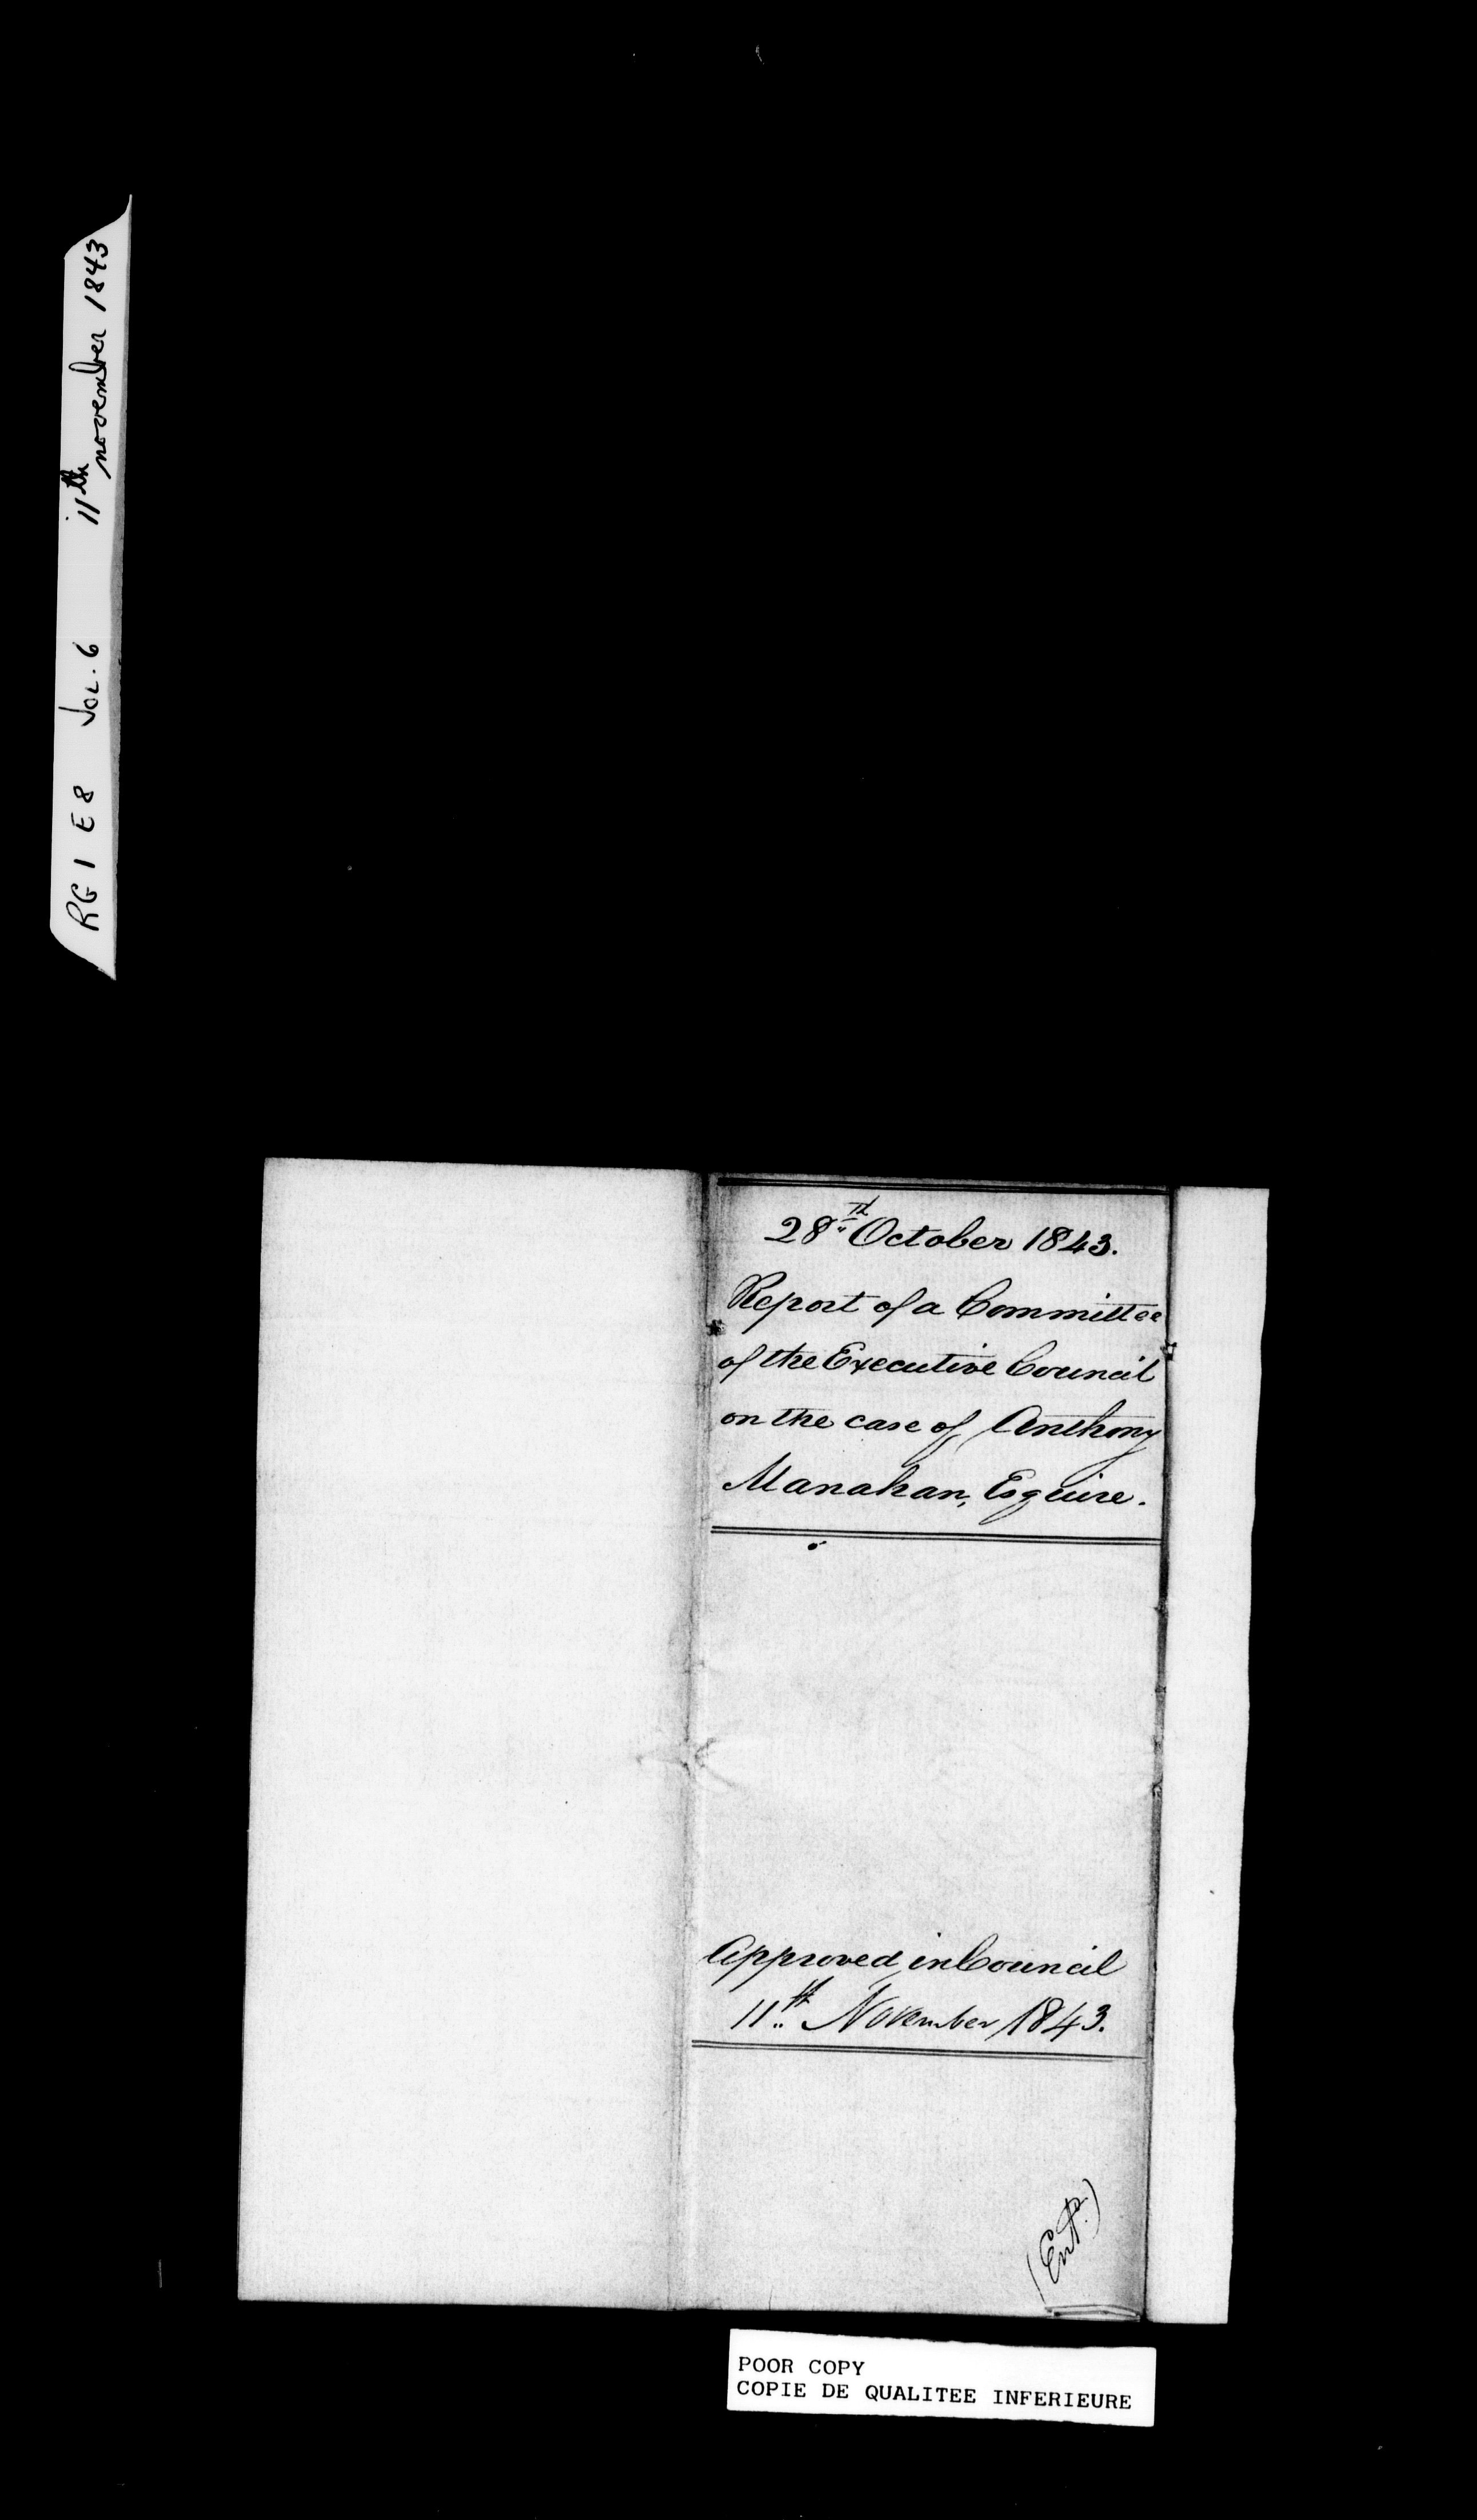 RG 1 E 8 Vol. 6 11th november 1843
28th October 1843.
Report of a Committee
of the Executive Council
on the case of Anthony
Manahan, Esquire.
Approved in Council
11th November 1843.
(Entd.)
POOR COPY
COPIE DE QUALITEE INFERIEURE